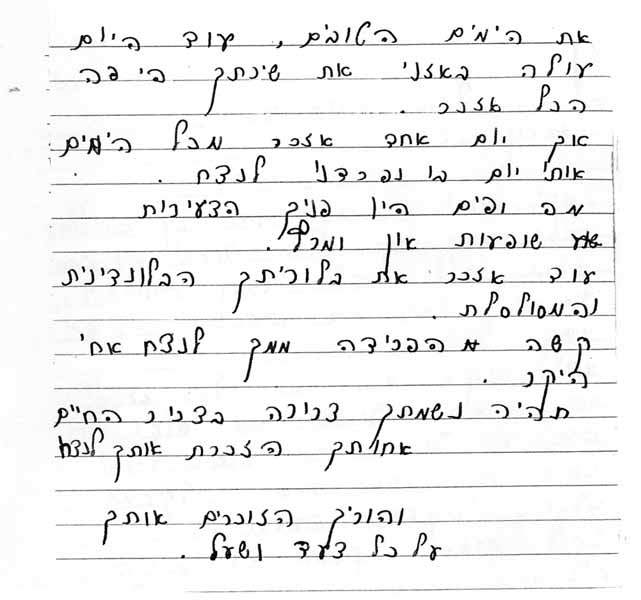 את הימים הטובים, עוד היום
עולה באזני את שירתך כי פה
הכל אזכר.
אך יום אחד אזכר מכל הימים
אותו יום בו נפרדנו לנצח.
מה ופים היו פניך הצעירות
שופעות און ומרץ.
עוד אזכר את בלוריתך הבלונדינית
והמסולסלת.
קשה הפרידה ממך לנצח אחי
היקר.
תהיה נשמתך צרורה בצרור החיים
אחותך הזוכרת אותך לנצח
והוריך הזוכרים אותך
על כל צעד ושעל.